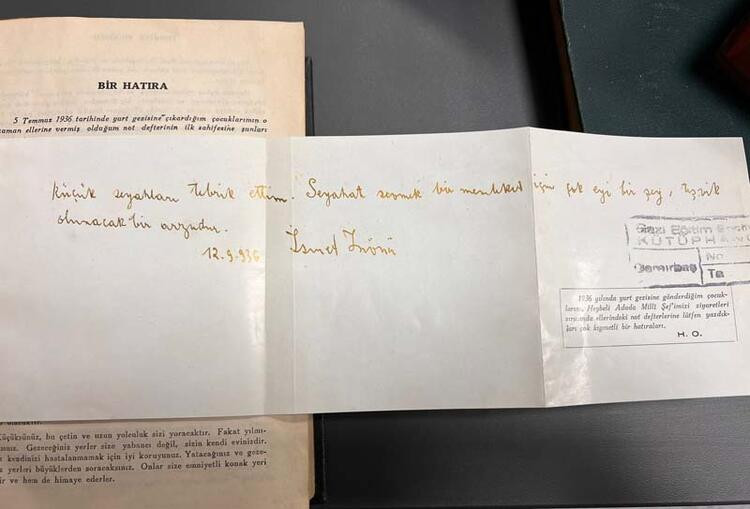 BİR HATIRA
5 Temmuz 1936 tarihinde yurt gezisine çıkardığım çocuklarımın o
zaman ellerine vermiş olduğum not defterinin ilk sahifesine şunları
küçük seyyahları tebrik ettim. Seyahat sevmek bir memleket için çok eyi bir şey, teşvik
olunacak bir arzudur.
12.9.936 İsmet İnönü
Gazi Eğitim
KÜTÜPHANE
Demirbaş
No
Ta
1936 yılında yurt gezisine gönderdiğim çocuk-
ların, Heybeli Adada Millî Şef'imizi ziyaretleri
sırasında ellerindeki not defterlerine lûtfen yazdık-
ları çok kıymetli bir hatıraları.
H. O.
Küçüksünüz, bu çetin ve uzun yolculuk sizi yoracaktır. Fakat yılmı-
Gezeceğiniz yerler size yabancı değil, sizin kendi evinizdir.
kendinizi hastalanmamak için iyi koruyunuz. Yatacağınız ve geze-
yerleri büyüklerden soracaksınız. Onlar size emniyetli konak yeri
ve hem de himaye ederler.